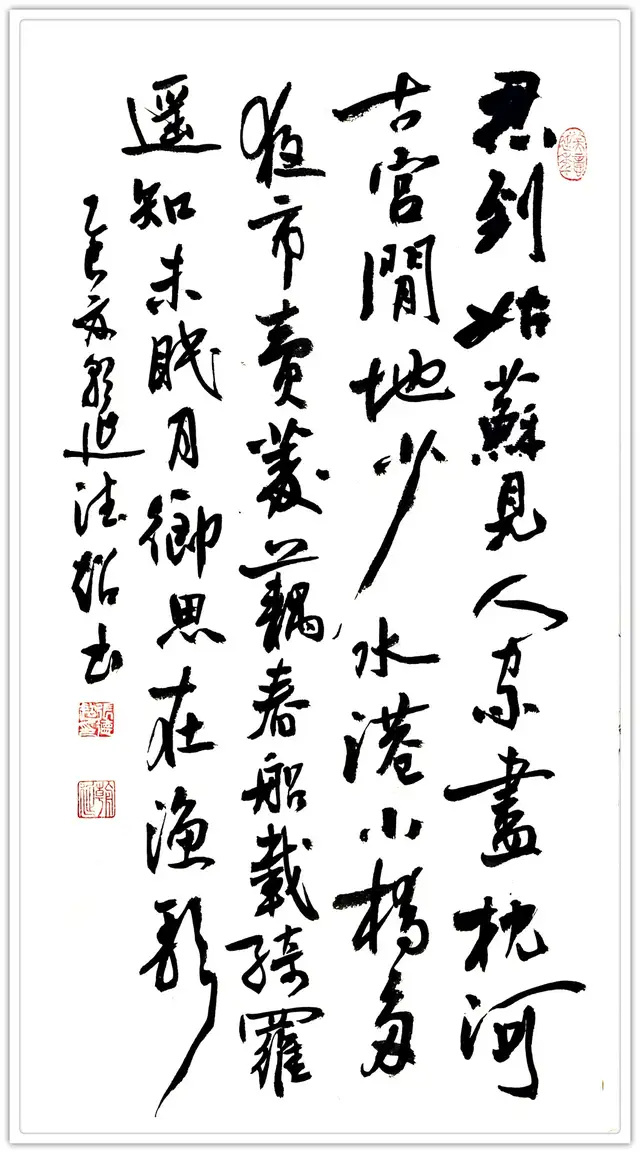 君到姑蘇見人家盡枕河
古宮閒地少水港小橋多
夜市賣菱藕春船載綺羅
遥知未眠月鄉思在漁歌
乙巳 书